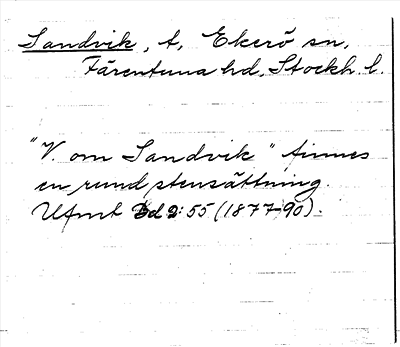 Sandvik, t, Ekerö sn,
Färentuna hd, Stockh. l.
"V. om Sandvik" finnes
en rund stensättning.
UFmt Bd 2:55 (1877-90).